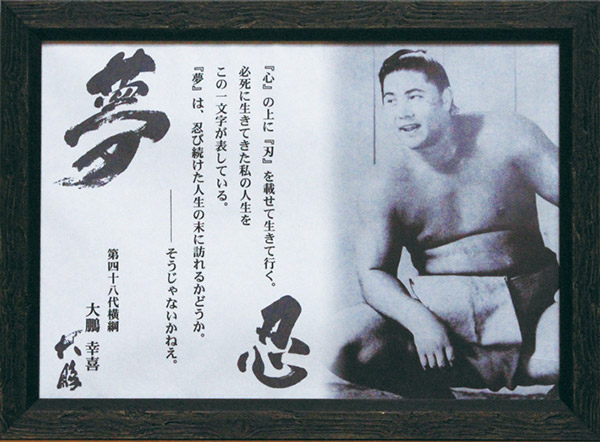 『心』の上に『刃』を載せて生きて行く。
必死に生きてきた私の人生を
この一文字が表している。
『夢』は、忍び続けた人生の末に訪れるかどうか。
――そうじゃないかねえ。
忍
夢
第四十八代横綱
大鵬 幸喜
大鵬